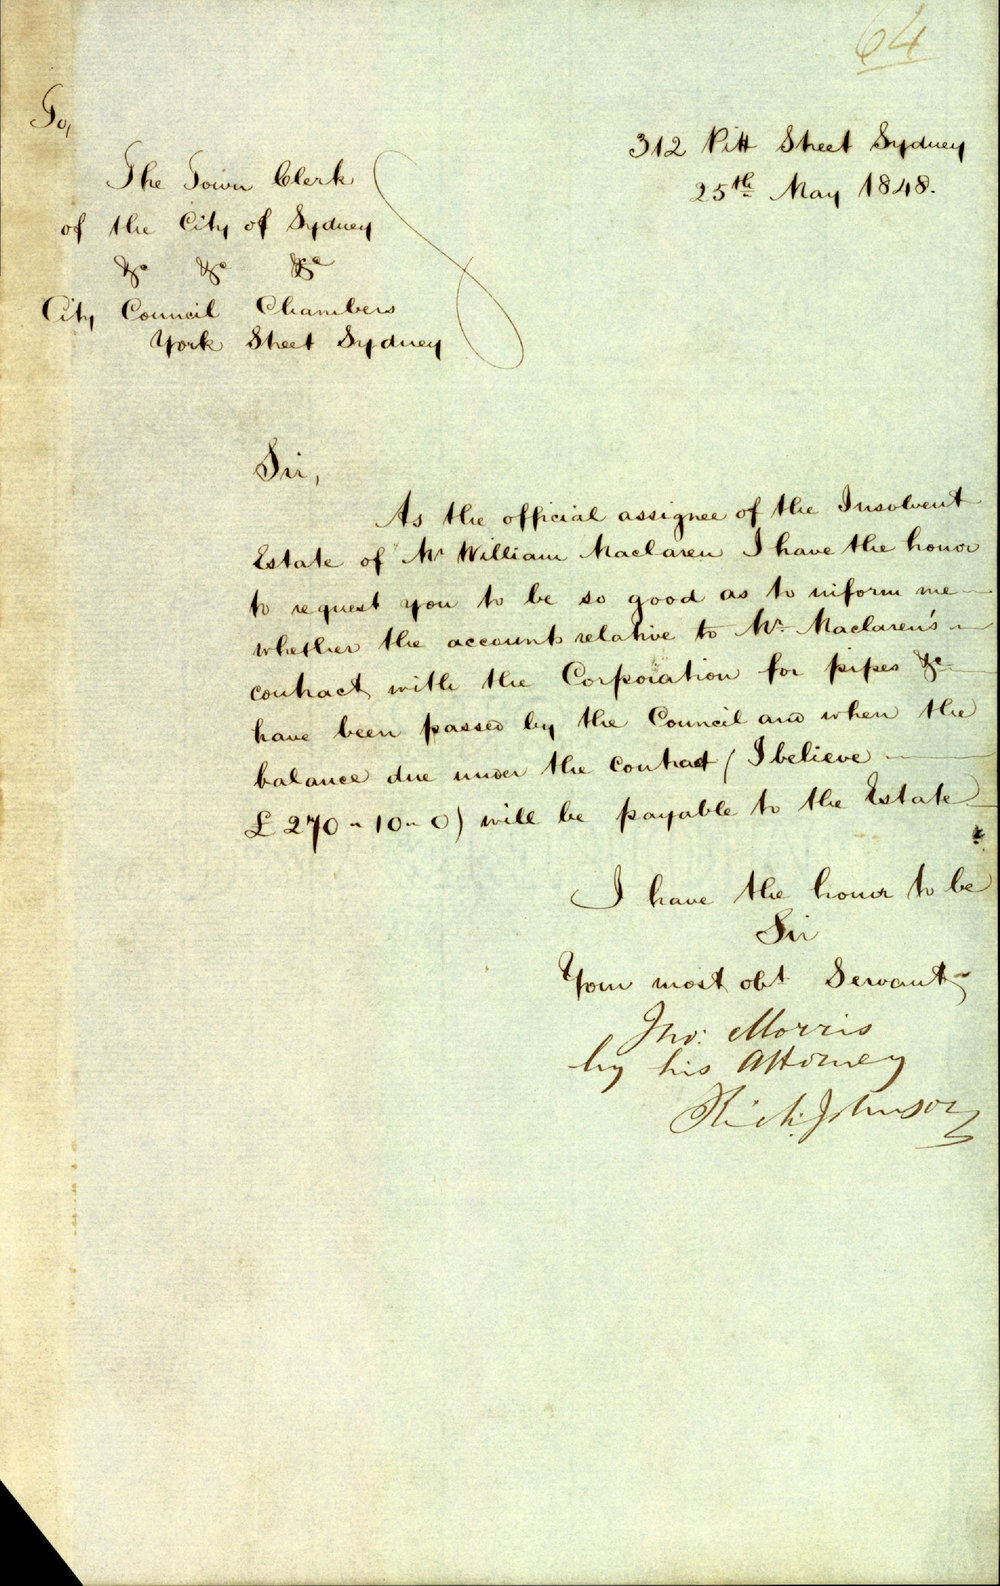 64
To,
312 Pitt Street Sydney
25th May 1848.
The Town Clerk
of the City of Sydney
&c &c &c
City Council Chambers
York Street Sydney
Sir,
As the official assignee of the Insolvent
Estate of Mr William Maclaren I have the honor
to request you to be so good as to inform me
whether the accounts relative to Mr. Maclaren's
contract with the Corporation for pipes &c
have been passed by the Council and when the
balance due under the contract (I believe
£270-10-0) will be payable to the Estate
I have the honor to be
Sir
Your most obt Servant
Jno: Morris
by his Attorney
Rich: Johnson